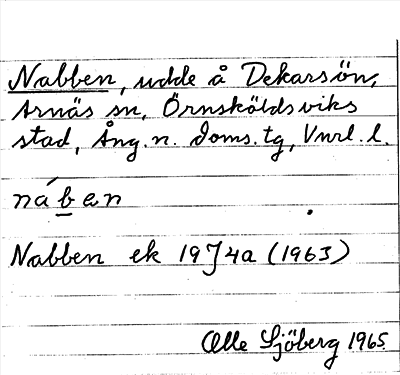 Nabben, udde å Dekarsön,
Arnäs sn, Örnsköldsviks
stad, Ång. n. doms. tg, Vnrl. l.
náben
Nabben ek 19J4a (1963)
Olle Sjöberg 1965